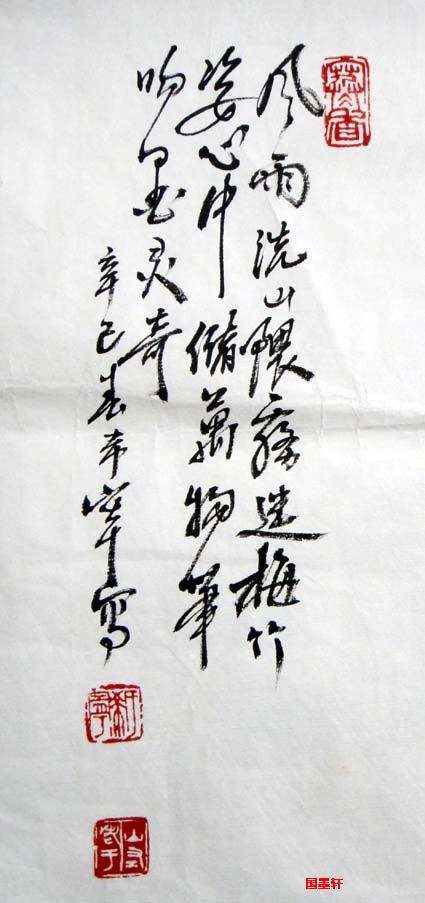 风雨洗山隈雾迷梅竹
姿心中储万物笔
吻墨灵奇
辛巳春
写
国墨轩